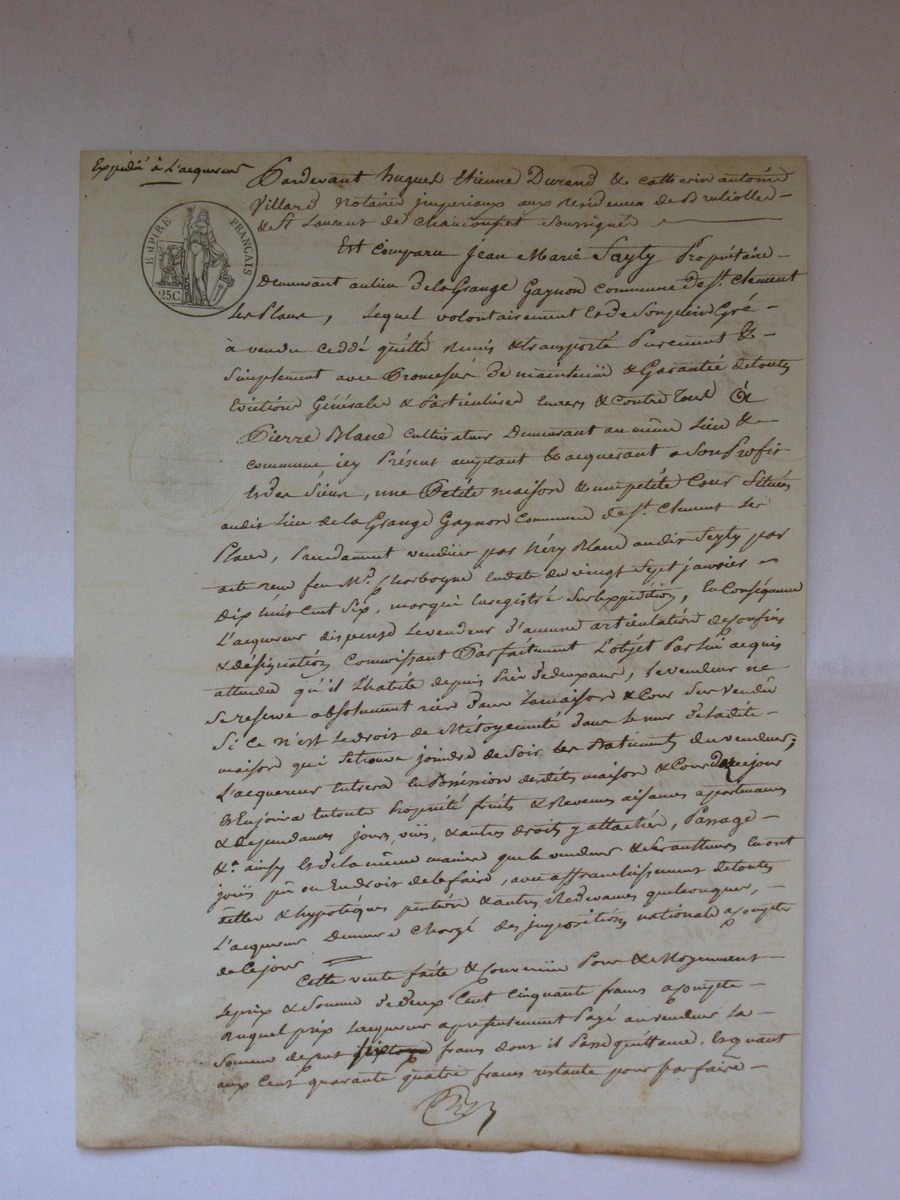 Expédié à L'acquereur
Pardevant hugues Etienne Durand & catherin antoine
Villard Notaires imperiaux aux Residences de Brullioles
& St Laurent de Chamousset soussignés
Est comparu Jean Marie Sayty Propriétaire
EMPIRE FRANÇAIS
25C
Demeurant au lieu de la Grange Gaynon commune de St. Clement
Les Places, Lequel volontairement Et de Son plein Gré
à vendu ceddé quitté Remis & transporté Purement &
Simplement avec Promesse de maintenüe & Garantie de toutes
Evictions Générales & Particulieres Envers & Contre Tous à
Pierre Blanc cultivateur Demeurant au même Lieu &
commune icy Présent acceptant & acquerant a Son Profit
Et des Siens, une Petite maison & une petite Cour Situées
audit Lieu de la Grange Gaynon Commune de St. Clement Les
Places, vendüe par Blanc audit Sayty par
acte reçu feu Me. En date du vingt Sept janvier
Dix huit Cent Six, marqué Enregistré Sur l'expédition, En Conséquence
L'acquereur dispense Le vendeur d'aucune articulation de confins
& désignation Connoissant Parfaitement L'objet Par lui acquis
attendu qu'il L'habite depuis Près de deux ans, le vendeur ne
Se reserve absolument rien dans La maison & Cour Sus vendüe
Si Ce n'est Le droit de Mitoyenneté dans Le mur de la dite
maison qui Se trouve joindre de Soir Les Batiments du vendeur;
L'acquereur Entrera En Possession desdites maison & Cour de ce jour
Et En jouira En toute Propriété fruits & Revenus aisances apartenances
& dependances jours, vües, & autres droits y attachés, Passage
&a. ainsy Et de la même maniere que le vendeur & Ses autheurs En ont
joüis pû ou En droit de le faire, avec affranchissement de toutes
dettes & hypotéques pensions & autres Redevances quelconques,
L'acquereur Demeure Chargé des impositions nationales a compter
de Ce jour
Cette vente faite & Convenüe Pour & Moyennant
Le prix & Somme de deux Cent Cinquante francs a compte
Duquel prix L'acquereur a presentement Payé au vendeur La
Somme de Cent francs dont il Passe quittance, Et quant
aux Cent quarante quatre francs restants pour parfaire